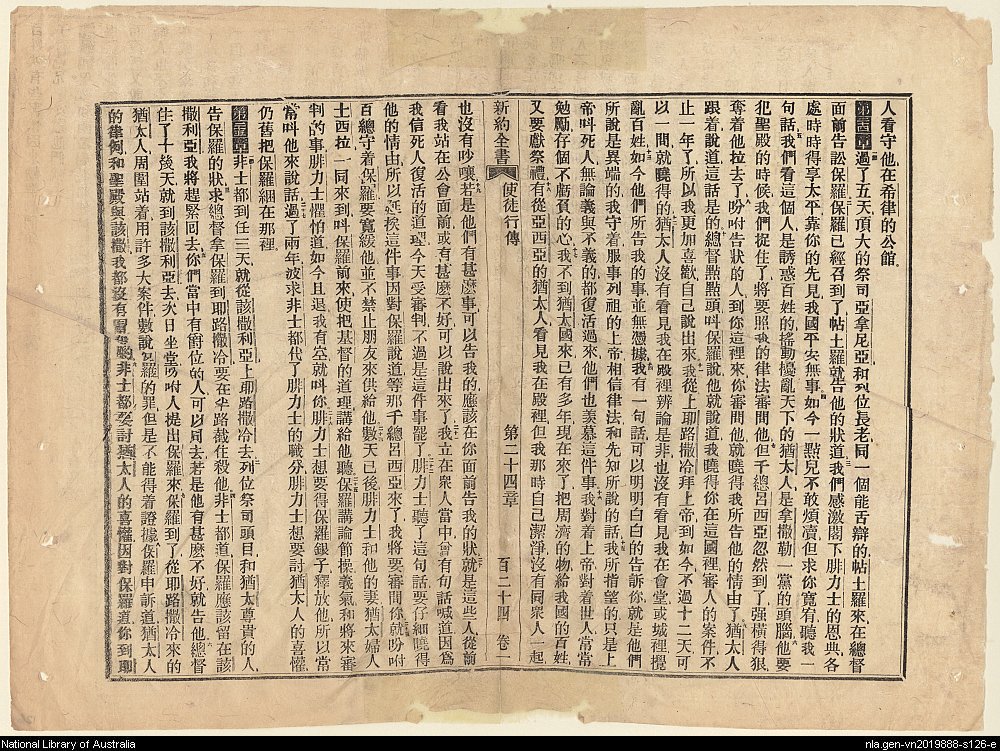 人看守他在希律的公館
第二十四章過了五天頂大的祭司亞拿尼亞和列位長老同一個能舌辯的帖土羅來在總督
面前告訟保羅保羅已經召到了帖土羅就告他的狀道我們感激閣下腓力士的恩典各
處時時得享太平靠你的先見我國平安無事如今一點兒不敢煩瀆但求你寬宥聽我一
句話我們看這個人是誘惑百姓的搖動擾亂天下的猶太人是拿撒勒一黨的頭腦他要
犯聖殿的時候我們捉住了將要照我的律法審問他但千總呂西亞忽然到了強橫得狠
奪着他拉去了吩咐告狀的人到你這裡來你審問他就曉得我所告他的情由了猶太人
跟着說道這話是的總督點點頭叫保羅說他就說道我曉得你在這國裡審人的案件不
止一年了所以我更加喜歡自己說出來我從上耶路撒冷拜上帝到如今不過十二天可
以一問就曉得的猶太人沒有看見我在殿裡辨論是非也沒有看見我在會堂或城裡攪
亂百姓如今他們所告我的事並無憑據我有一句話可以明明白白的告訴你就是他們
所說是異端的我守着服事列祖的上帝相信律法和先知所說的話我所指望的只是上
帝叫死人無論義與不義的都復活過來他們也羨慕這件事我對着上帝對着世人常常
勉勵存個不虧負的心我不到猶太國來已有多年現在來了把周濟的物給我國的百姓
又要獻祭禮有從亞西亞的猶太人看見我在殿裡但我那時自己潔淨沒有同衆人一起
新約全書 使徒行傳 第二十四章 百二十四 卷一
也沒有吵嚷若是他們有甚麽事可以告我的應該在你面前告我的狀就是這些人從前
看我站在公會面前或有甚麽不好可以說出來了我立在衆人當中曾有句話喊道因爲
我信死人復活的道理今天受審判不過是這件事罷了腓力士聽了這句話要仔細曉得
他的情由所以延挨這件事因對保羅說道等那千總呂西亞來了我將要審問你就吩咐
百總守着保羅要寬緩他並不禁止朋友來供給他數天已後腓力士和他的妻猶太婦人
士西拉一同來到叫保羅前來使把基督的道理講給他聽保羅講論節操義氣和將來審
判的事腓力士懼怕道如今且退我有空就叫你腓力士想要得保羅銀子釋放他所以常
常叫他來說話過了兩年波求非士都代了腓力士的職分腓力士想要討猶太人的喜懽
仍舊把保羅綑在那裡
第二十五章非士都到任三天就從該撒利亞上耶路撒冷去列位祭司頭目和猶太尊貴的人
告保羅的狀求總督拿保羅到耶路撒冷要在半路截住殺他非士都道保羅應該留在該
撒利亞我將趕緊回去你們當中有爵位的人可以同去若是他有甚麽不好就告他總督
住了十幾天就到該撒利亞去次日坐堂吩咐人提出保羅來保羅到了從耶路撒冷來的
猶太人周圍站着用許多大案件數說保羅的罪但是不能得着證據保羅申訴道猶太人
的律例和聖殿與該撒我都沒有冒犯的非士都要討猶太人的喜懽因對保羅道你到耶
National Library of Australia
nla.gen-vn2019888-s126-e